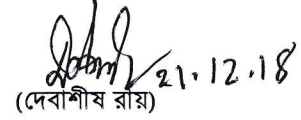 21.12.18
(দেবাশীষ রায়)